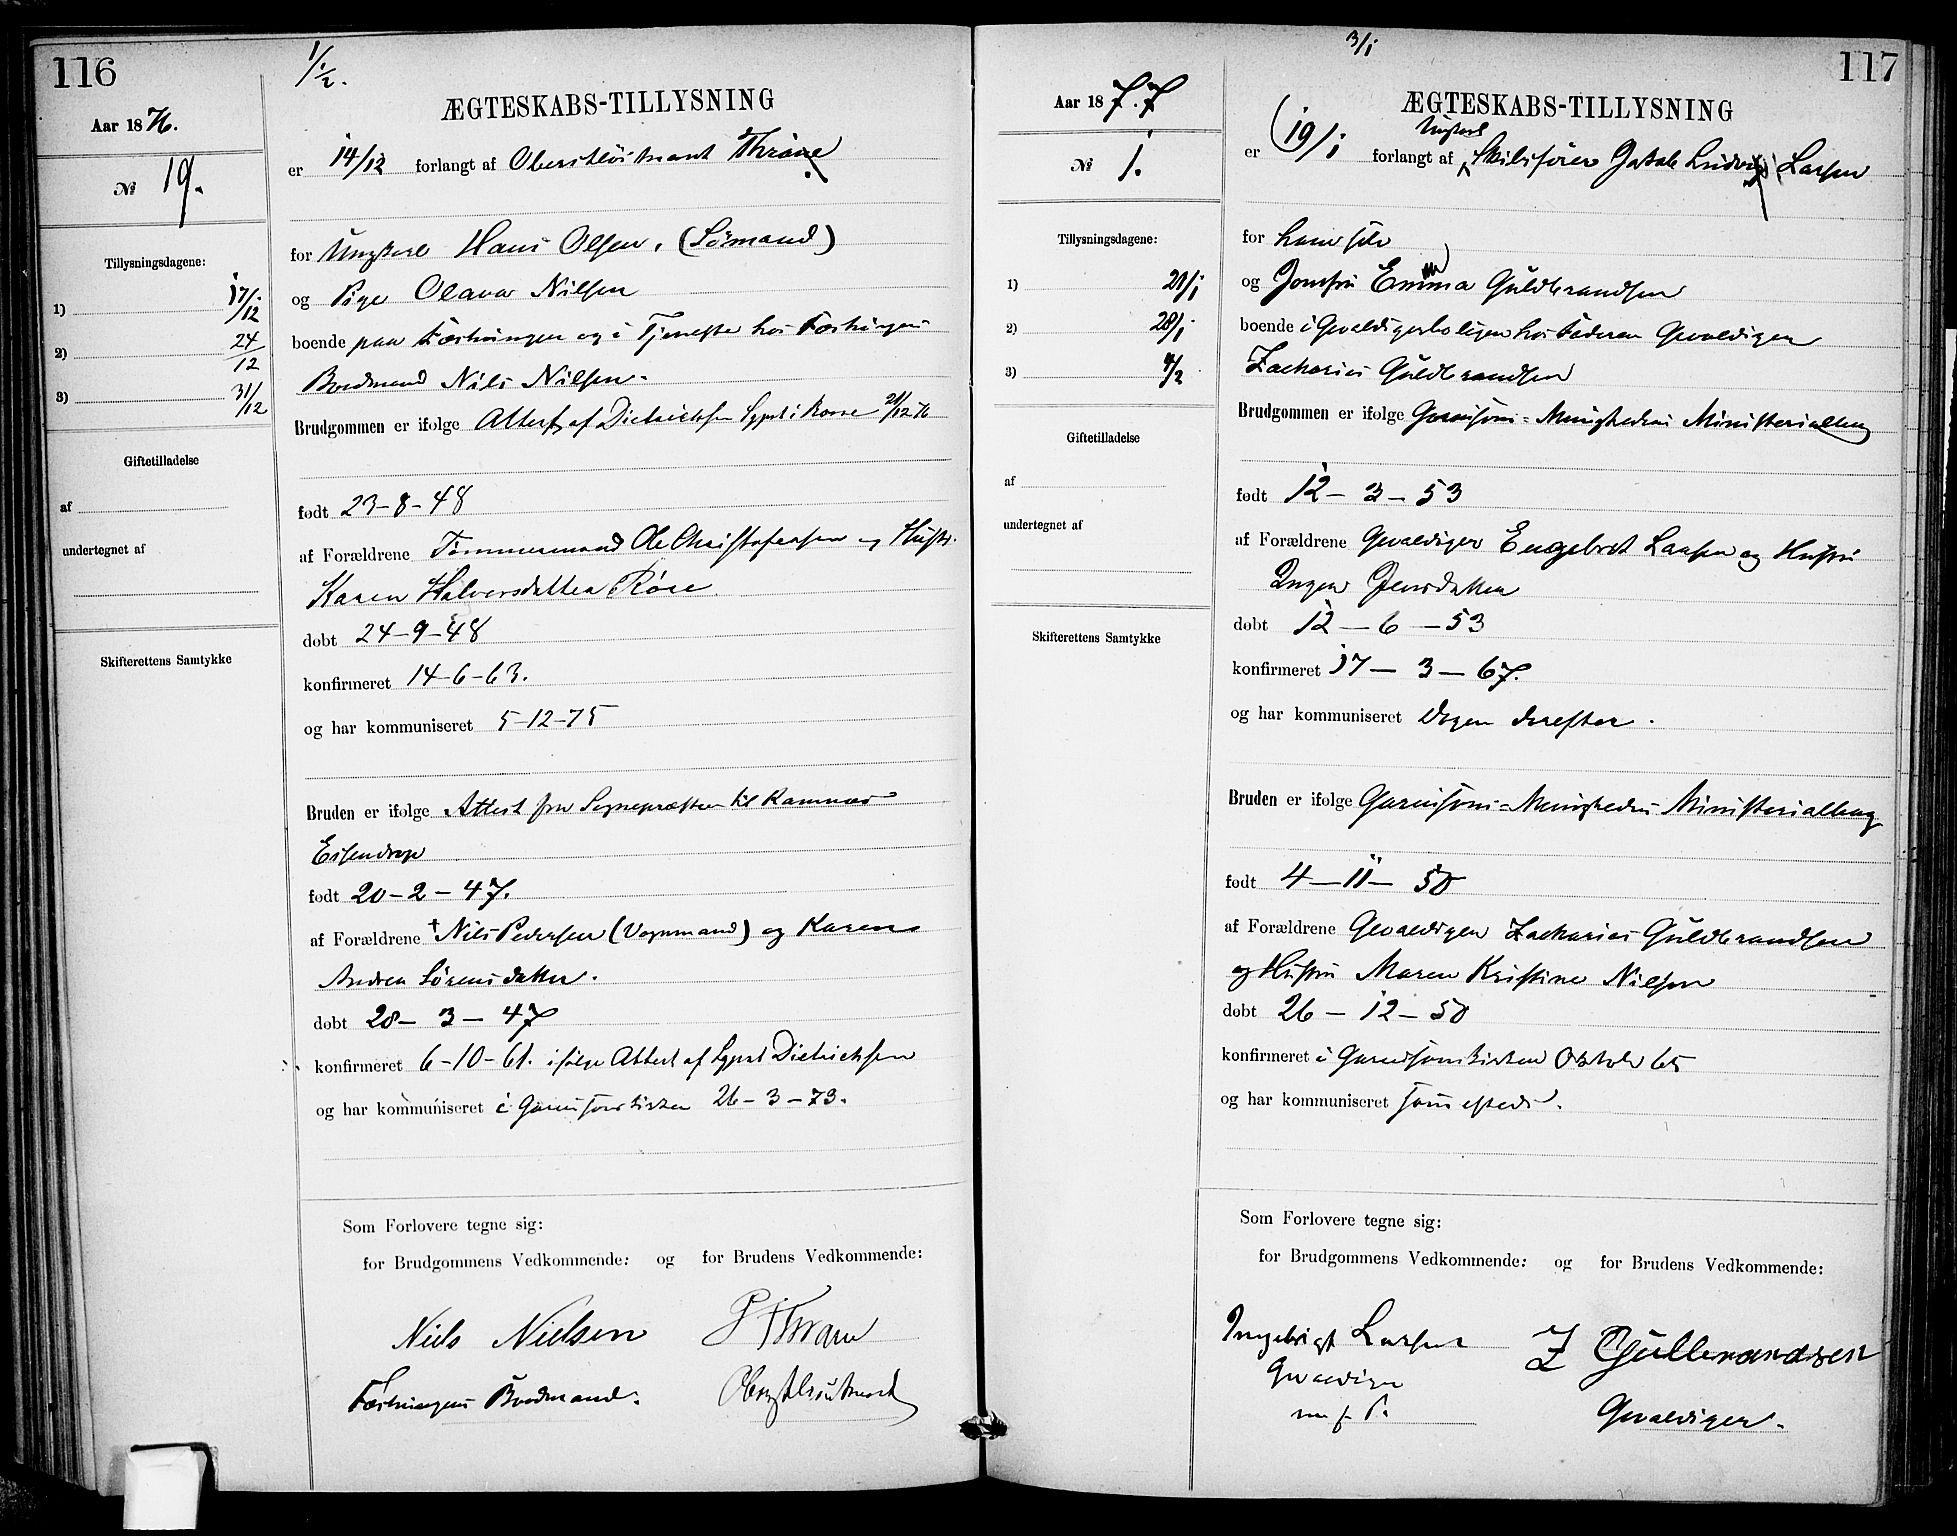 116
1/1 2.
Aar 1876.
№ 19.
Tillysningsdagene:
1) 17/12
2) 24/12
3) 31/12
Giftetilladelse
af
undertegnet af
Skifterettens Samtykke
ÆGTESKABS-TILLYSNING
er 14/12 forlangt af Oberstløitnant Thrane
for Ungkarl Hans Olsen, (Sömand)
og Pige Olava Nilsen
boende paa Fæstningen og i Tjeneste hos Fæstningens
Bredmand Nils Nilsen.
Brudgommen er ifølge Attest af Dietrichsen Sgpst i 21/12 76
født 23-8-48
af Forældrene Tømmermand Ole Christofersen og Hustr.
Karen Halvorsdatter Röse
døbt 24-9-48
konfirmeret 14-6-63.
og har kommuniseret 5-12-75
Bruden er ifølge Attest fra Sognepræsten til Ramnæs
født 20-2-47.
af Forældrene † Nils Pedersen (Vognmand) og Karen
Andrea Sörensdatter.
døbt 28-3-47
konfirmeret 6-10-61. ifølge Attest af Sgpst Dietrichsen
og har kommuniseret i Garnisonskirken 26-3-73.
Som Forlovere tegne sig:
for Brudgommens Vedkommende: og for Brudens Vedkommende:
Niels Nielsen P Thrane
Fæstningens Brodmand. Oberstløitnant
117
3/1
Aar 1877
№ 1.
Tillysningsdagene:
1) 21/1
2) 28/1
3) 4/2
Giftetilladelse
af
undertegnet af
Skifterettens Samtykke
ÆGTESKABS-TILLYSNING
Ungkarl
er (19/1 forlangt af Skibsfører Jakob Ludvig Larsen
for ham selv
og Jomfru Emma Guldbrandsen
boende i Gevaldigerboligen hos Faderen Gevaldigen
Zacharias Guldbrandsen
Brudgommen er ifølge Garnisons-Menighedens Ministerialbog
født 12-3-53
af Forældrene Gevaldiger Engebret Larsen og Hustru
Inger Jensdatter
døbt 12-6-53
konfirmeret 17-3-67.
og har kommuniseret Dagen derefter.
Bruden er ifølge Garnisons-Menighedens Ministerialbog
født 4-11-50
af Forældrene Gevaldigen Zacharias Guldbrandsen
og Hustru Maren Kristine Nilsen
døbt 26-12-50
konfirmeret i Garnisonskirken Oktober 65
og har kommuniseret
Som Forlovere tegne sig:
for Brudgommens Vedkommende: og for Brudens Vedkommende:
Ingebrigt Larsen Z Gulbrandsen
Gevaldiger Gevaldiger.
m. f. P.